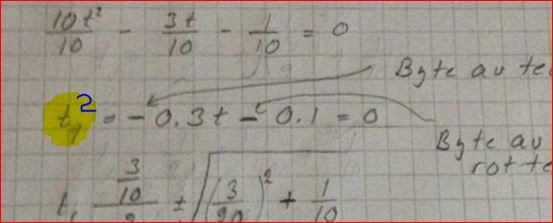 10t²/10 - 3t/10 - 1/10 = 0
Byte av te
t₁² = - 0.3t - 0.1 = 0
Byte av
rotte
t₁ 3/10 / 2 ± √(3/20)² + 1/10